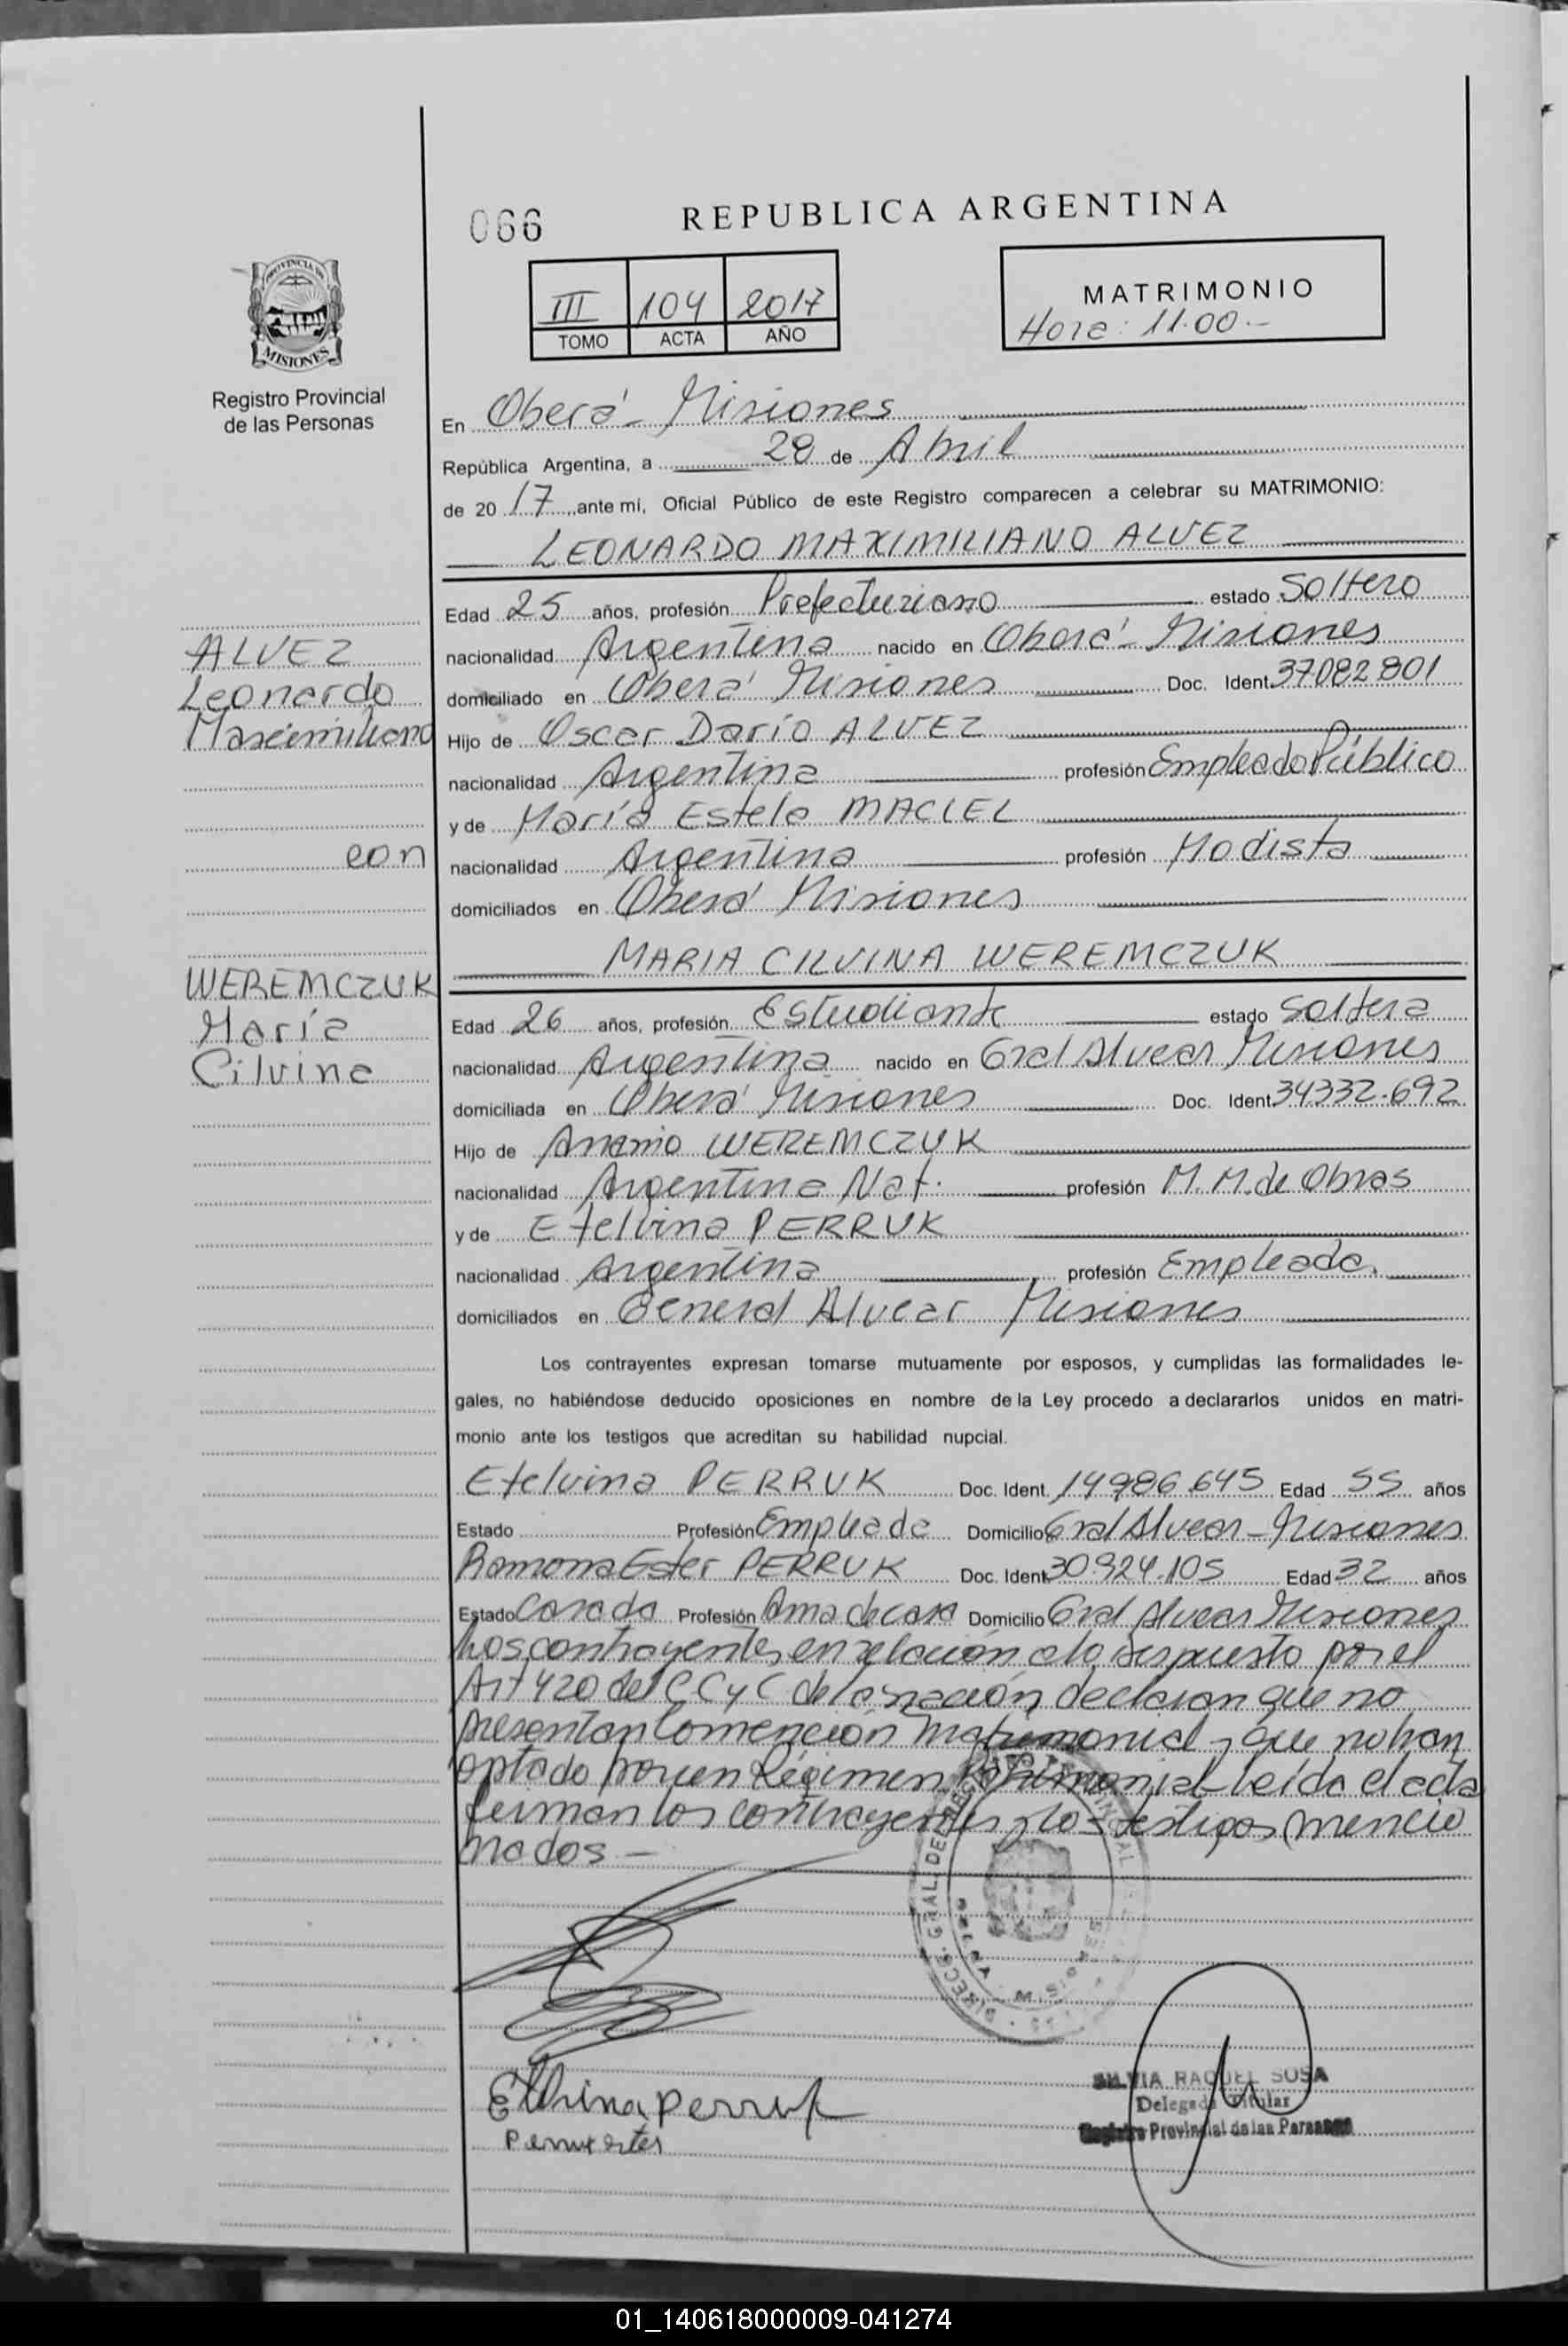 066
REPUBLICA ARGENTINA
PROVINCIA DE
MISIONES
Registro Provincial
de las Personas
III 104 2017
TOMO ACTA AÑO
MATRIMONIO
Hora: 11.00.-
En Oberá - Misiones
República Argentina, a 28 de Abril
de 2017 ante mi, Oficial Público de este Registro comparecen a celebrar su MATRIMONIO:
LEONARDO MAXIMILIANO ALVEZ
ALVEZ
Leonardo
Maximiliano
con
WEREMCZUK
María
Cilvina
Edad 25 años, profesión Prefecturiano estado Soltero
nacionalidad Argentina nacido en Oberá - Misiones
domiciliado en Oberá Misiones Doc. Ident. 37082801
Hijo de Oscar Darío ALVEZ
nacionalidad Argentina profesión Empleado Público
y de María Estela MACIEL
nacionalidad Argentina profesión Modista
domiciliados en Oberá Misiones
MARIA CILVINA WEREMCZUK
Edad 26 años, profesión Estudiante estado Soltera
nacionalidad Argentina nacido en Gral Alvear Misiones
domiciliada en Oberá Misiones Doc. Ident. 34332.692
Hijo de Ananio WEREMCZUK
nacionalidad Argentina Nat. profesión M.M. de Obras
y de Etelvina PERRUK
nacionalidad Argentina profesión Empleada.
domiciliados en General Alvear Misiones
Los contrayentes expresan tomarse mutuamente por esposos, y cumplidas las formalidades le-
gales, no habiéndose deducido oposiciones en nombre de la Ley procedo a declararlos unidos en matri-
monio ante los testigos que acreditan su habilidad nupcial.
Etelvina PERRUK Doc. Ident. 14986.645 Edad 55 años
Estado Profesión Empleada Domicilio Gral Alvear - Misiones
Ramona Ester PERRUK Doc. Ident. 30.924.105 Edad 32 años
Estado Casada Profesión Ama de casa Domicilio Gral Alvear Misiones
Los contrayentes en relación a lo dispuesto por el
Art 420 del CCyC de la nación, declaran que no
presentan Convención Matrimonial y que no han
optado por un Régimen Patrimonial - Leída el acta
firman los contrayentes y los testigos mencio
nados -
DIRECC. GRAL. DEL
MISIONES
Etelvina Perruk
Perruk ester
SILVIA RAQUEL SOSA
Delegada Titular
Registro Provincial de las Personas
01_140618000009-041274